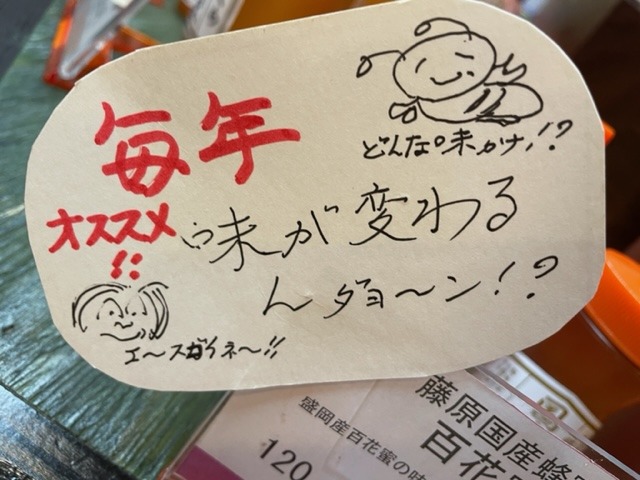 毎年
どんな味かナ!?
オススメ
!!
味が変わる
んダョ〜ン!?
エ〜スガイネ〜!!
藤原国産蜂
百花
盛岡産百花蜜の味
120